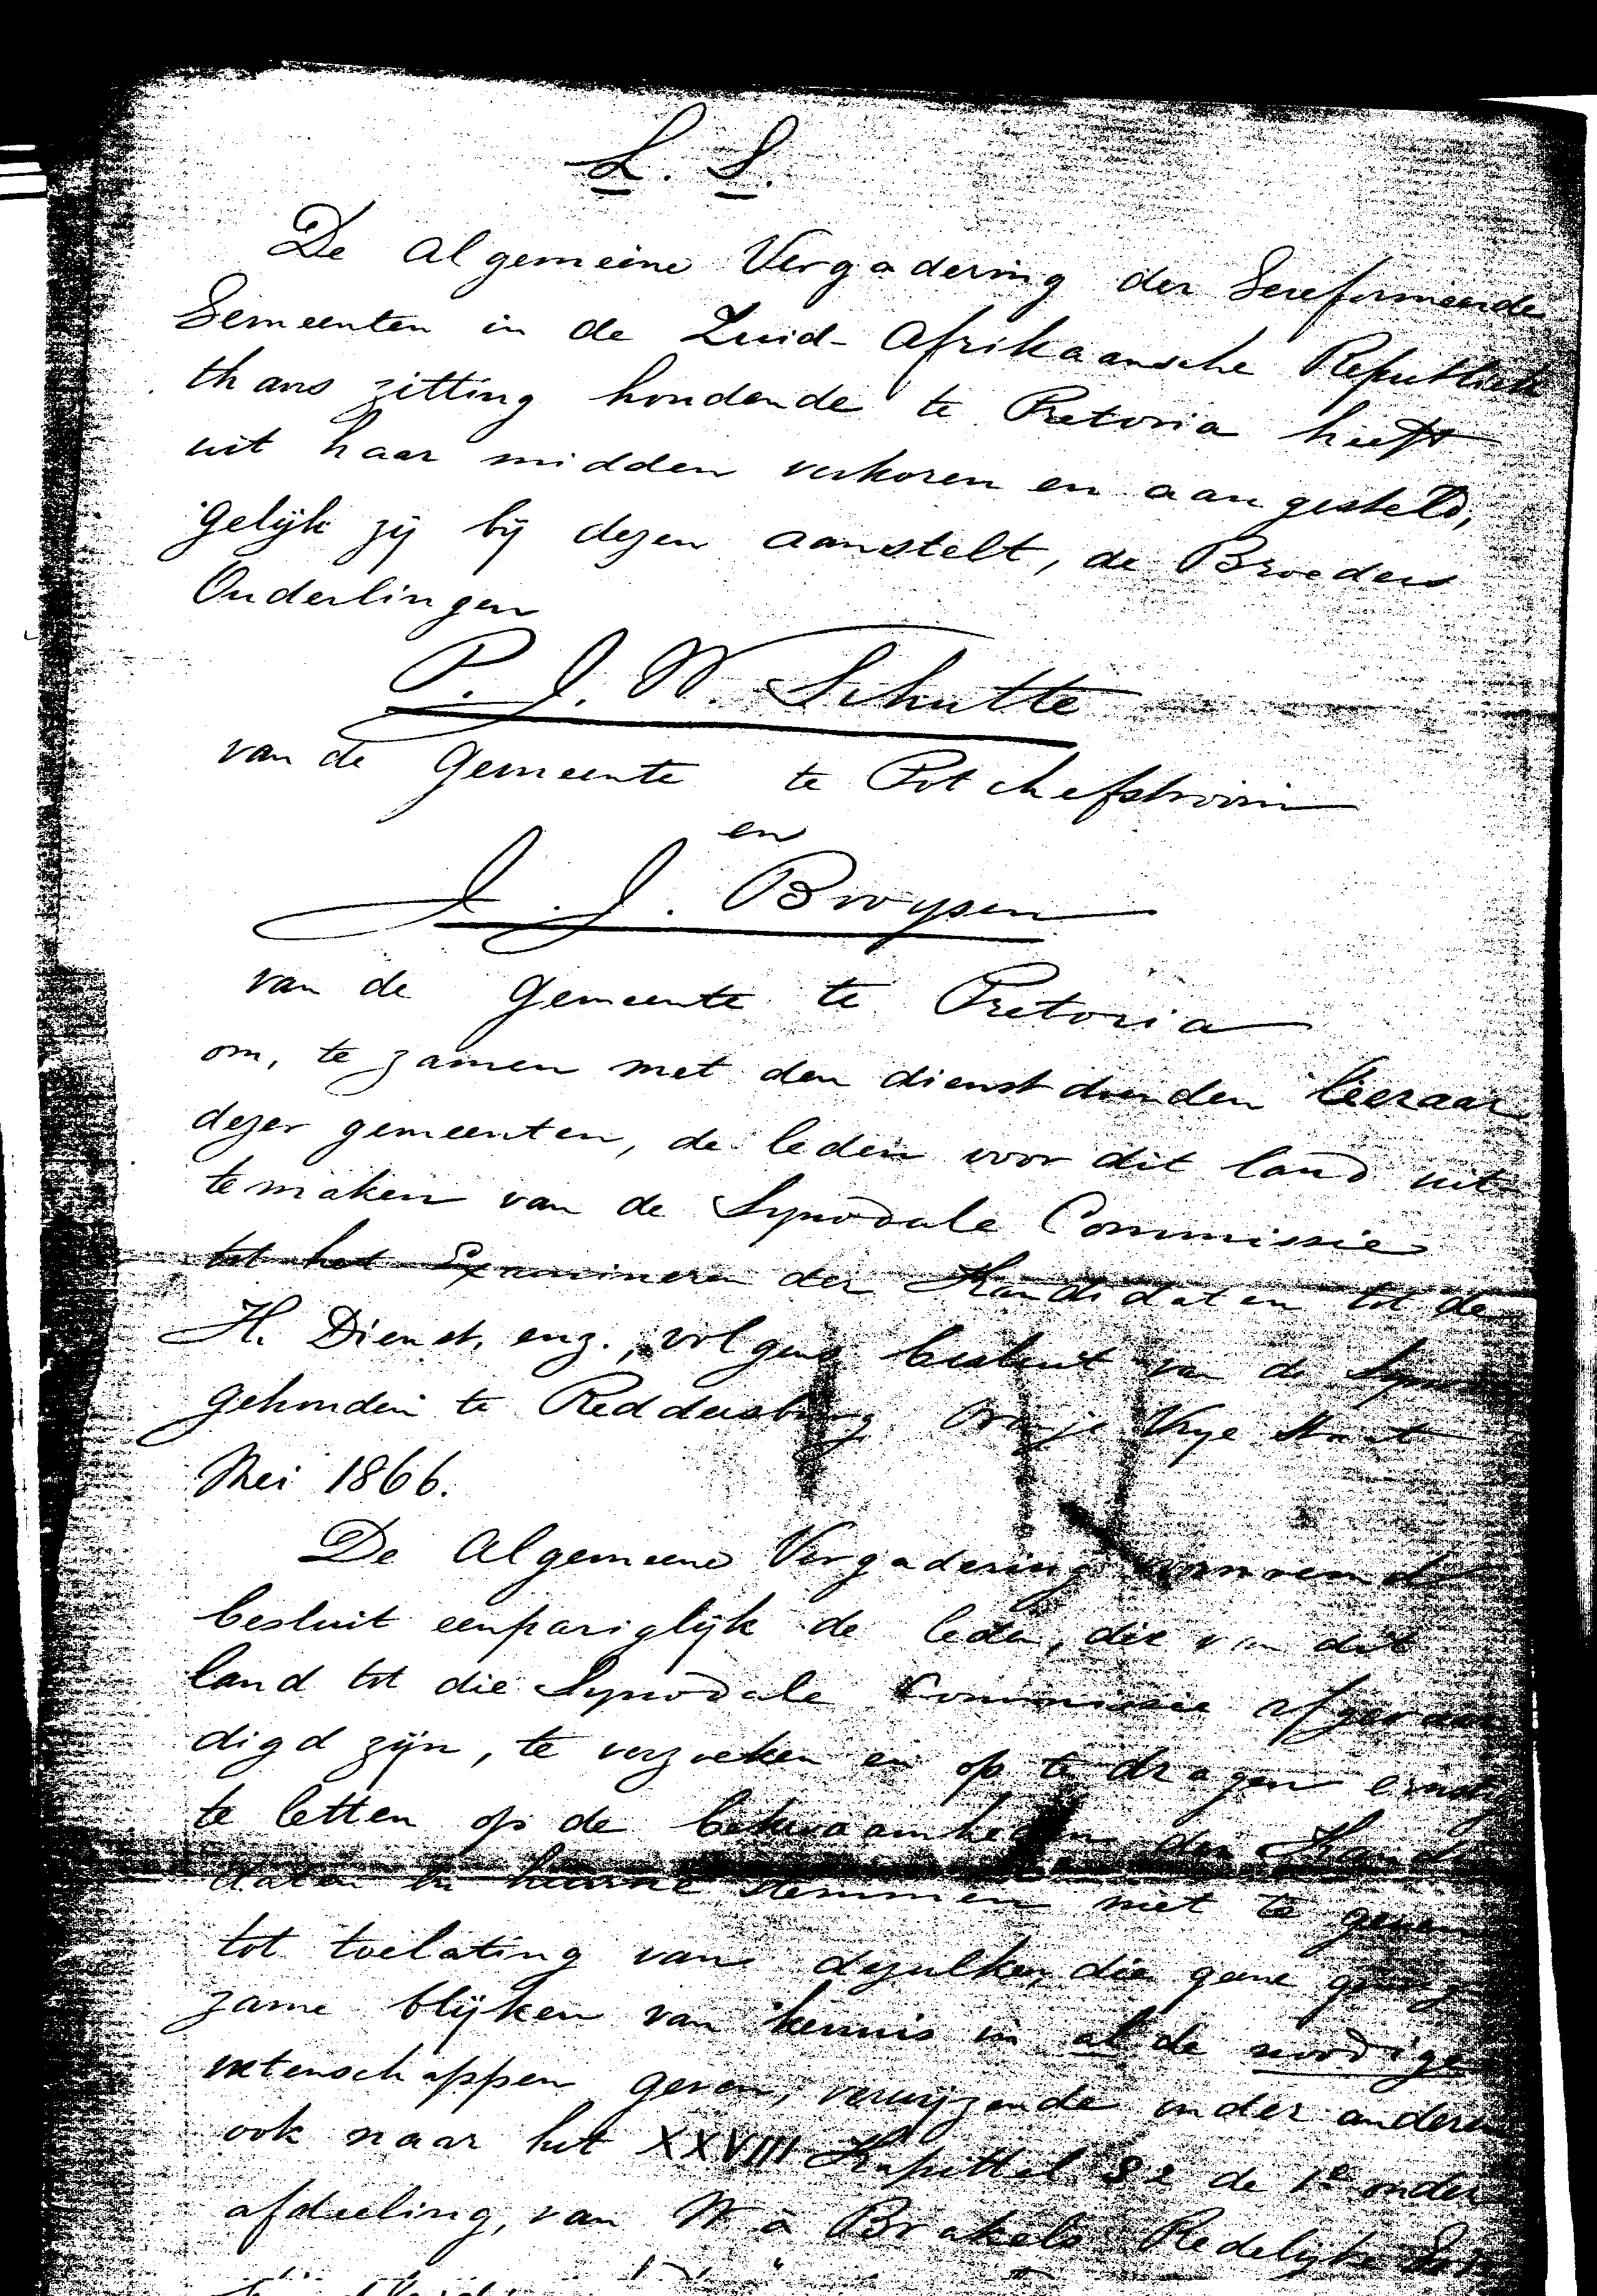 L. S.
De Algemeene Vergadering der Gereformeerde
Gemeenten in de Zuid-Afrikaansche Republiek
thans zitting houdende te Pretoria heeft
uit haar midden verkoren en aangesteld,
gelijk zij bij dezen aanstelt, de Broeders
Ouderlingen
P. J. W. Schutte
van de Gemeente te Potchefstroom
en
J. J. Bruysen
van de Gemeente te Pretoria
om, te zamen met den dienstdoenden leeraar
dezer gemeenten, de leden voor dit land uit
te maken van de Synodale Commissie
tot het Examineren der Kandidaten tot de
H. Dienst, enz., volgens besluit van de
gehouden te Reddersburg Oranje Vrye Staat
Mei 1866.
De Algemeene Vergadering voornoemd
besluit eenpariglijk de leden, die van dit
land tot die Synodale Commissie afgevaar
digd zijn, te verzoeken en op te dragen ernstig
te letten op de bekwaamheden der Kandi
daten en hunne stemmen niet te geven
tot toelating van dezulken, die geene genoeg
zame blijken van kennis in al de noodige
wetenschappen geven, verwijzende onder anderen
ook naar het XXVIII Kapittel de 1e onder
afdeeling, van W à Brakels Redelijke